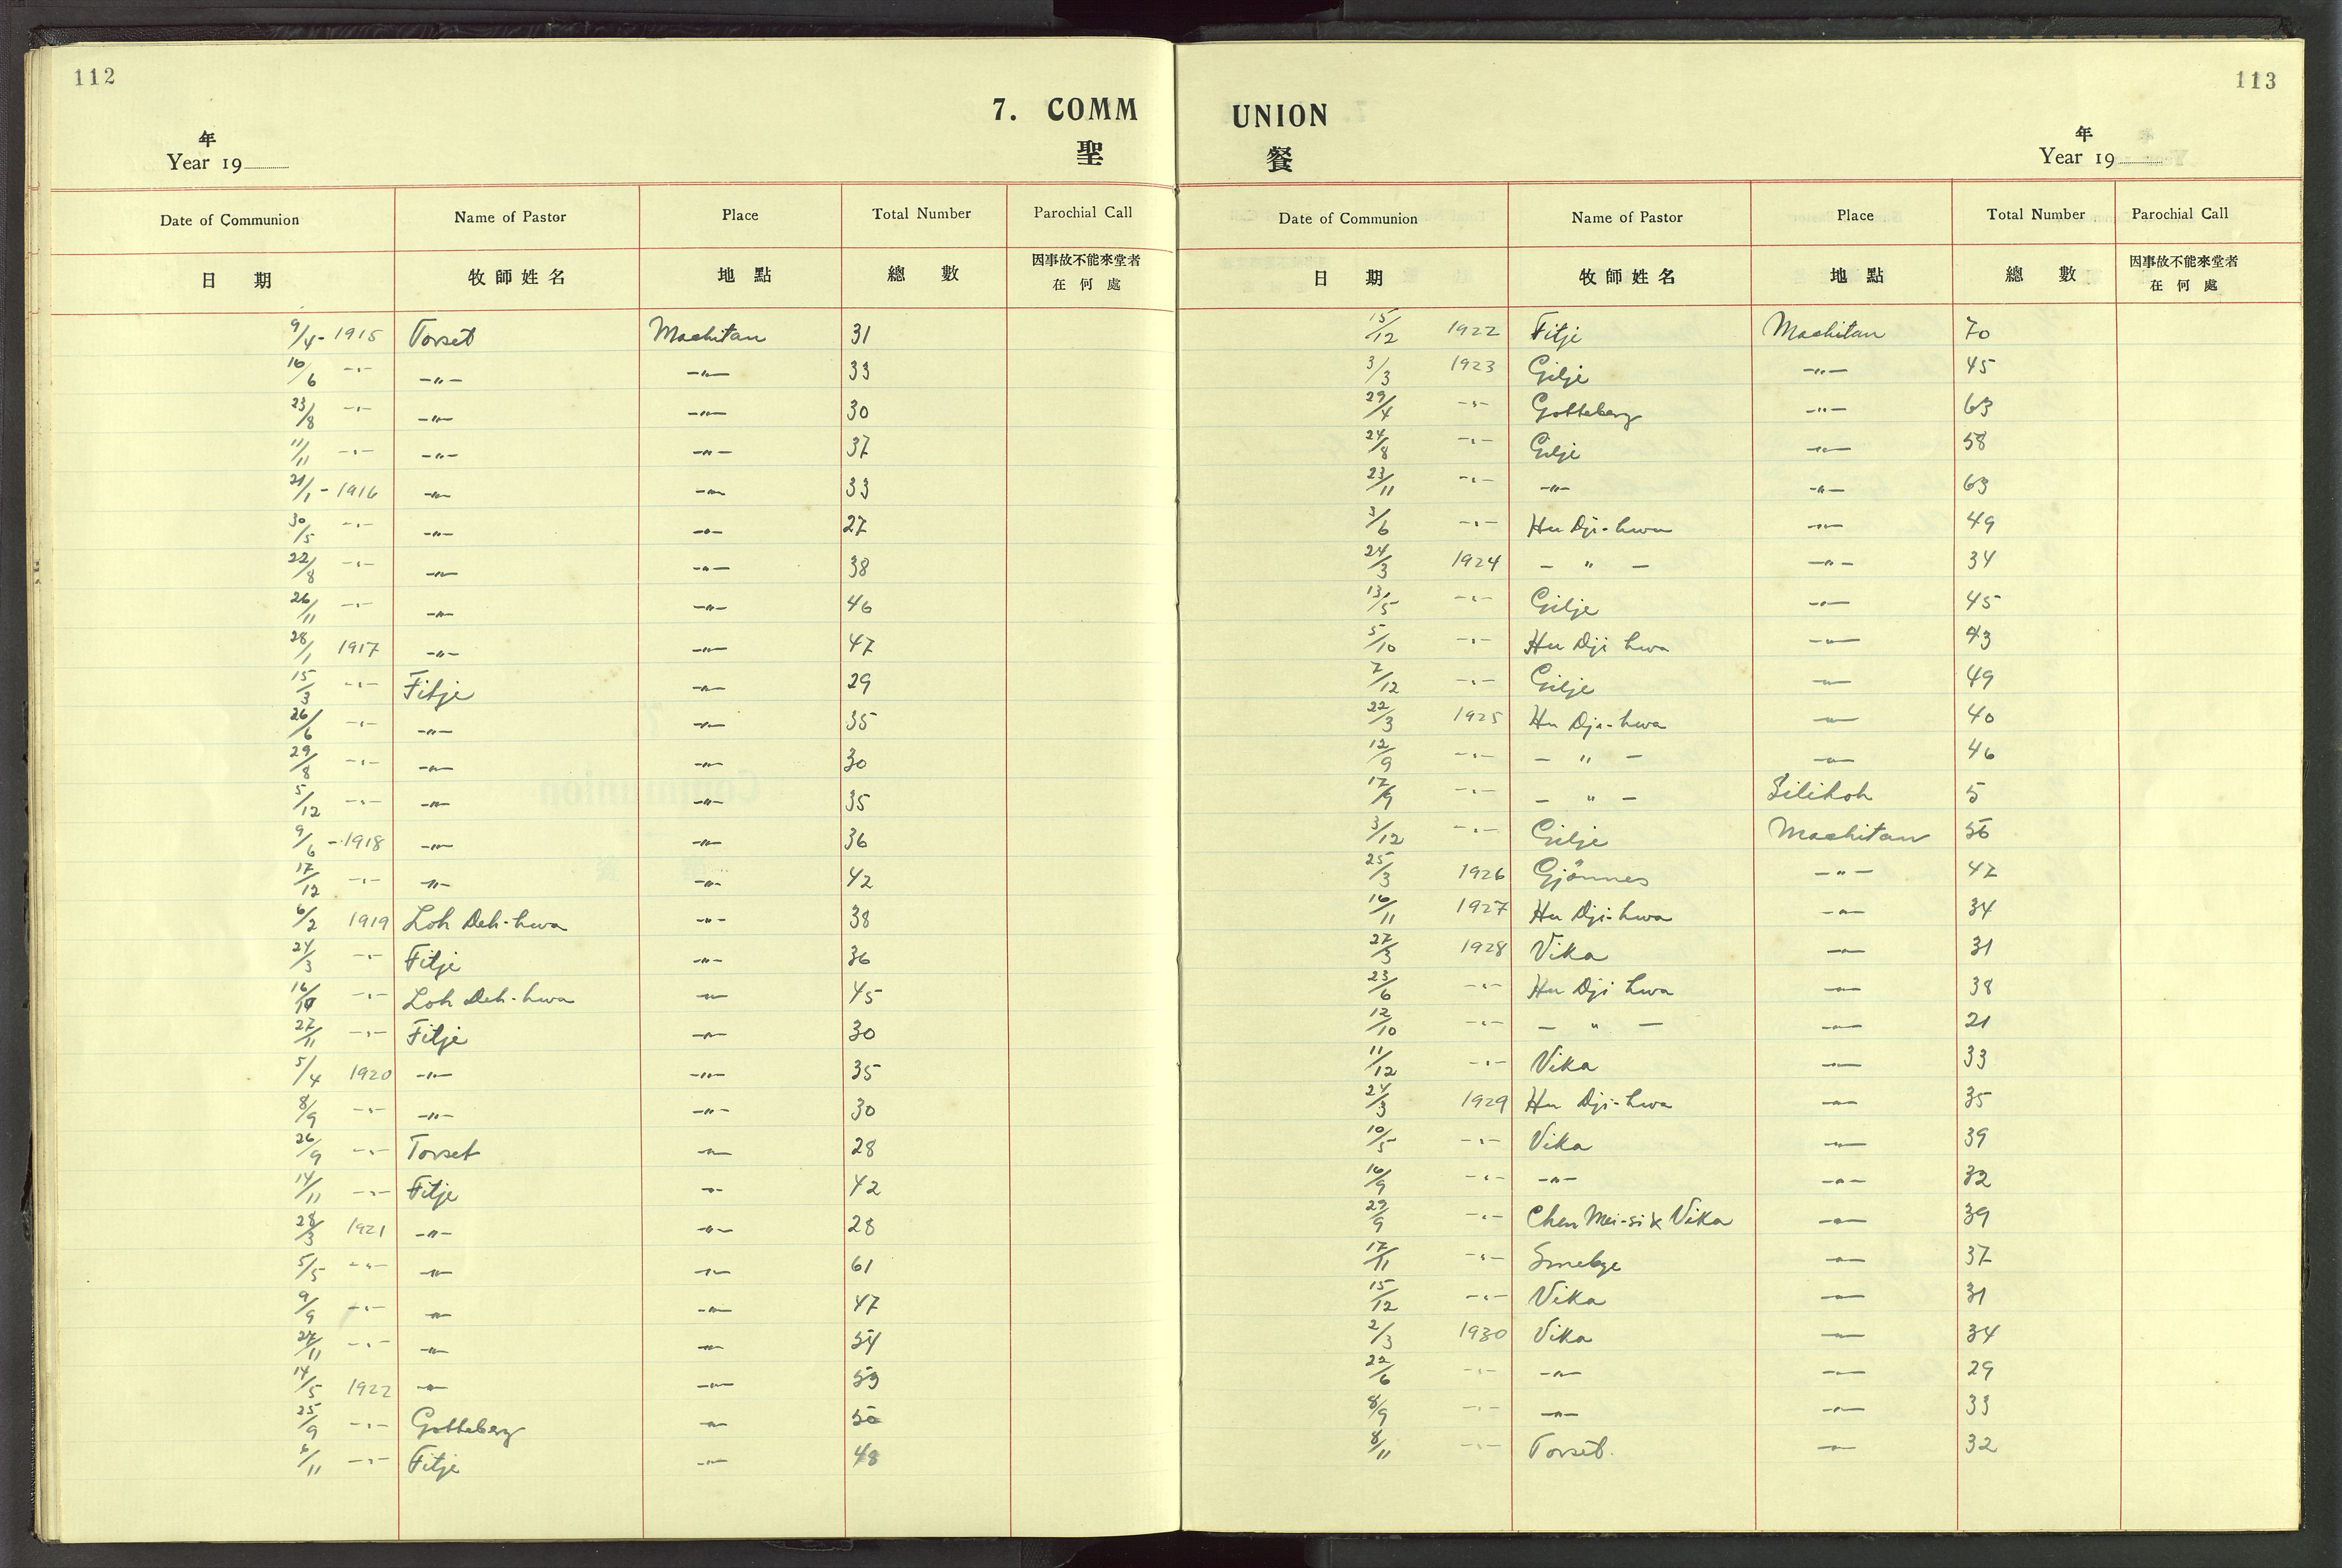 112
7. COMM
年
聖
Year 19
Date of Communion Name of Pastor Place Total Number Parochial Call
日 期 牧師姓名 地點 總數 因事故不能來堂者
在何處
9/4- 1915 Torset Machitan 31
16/6 -"- -"- -"- 33
23/8 -"- -"- -"- 30
11/11 -"- -"- -"- 37
21/1 - 1916 -"- -"- 33
30/5 -"- -"- -"- 27
22/8 -"- -"- -"- 38
26/11 -"- -"- -"- 46
28/1 1917 -"- -"- 47
15/3 -"- Fitje -"- 29
26/6 -"- -"- -"- 35
29/8 -"- -"- -"- 30
5/12 -"- -"- -"- 35
9/6 - 1918 -"- -"- 36
17/12 -"- -"- -"- 42
6/2 1919 Loh Deh-hwa -"- 38
24/3 -"- Fitje -"- 36
16/10 -"- Loh Deh-hwa -"- 45
27/11 -"- Fitje -"- 30
5/4 1920 -"- -"- 35
8/9 -"- -"- -"- 30
26/9 -"- Torset -"- 28
14/11 -"- Fitje -"- 42
28/3 1921 -"- -"- 28
5/5 -"- -"- -"- 61
9/9 -"- -"- -"- 47
27/11 -"- -"- -"- 54
14/5 1922 -"- -"- 53
25/9 -"- Gotteberg -"- 50
6/11 -"- Fitje -"- 48
113
UNION
年
餐
Year 19
Date of Communion Name of Pastor Place Total Number Parochial Call
日 期 牧師姓名 地點 總數 因事故不能來堂者
在何處
15/12 1922 Fitje Machitan 70
3/3 1923 Gilje -"- 45
29/4 -"- Gotteberg -"- 63
24/8 -"- Gilje -"- 58
23/11 -"- -"- -"- 63
3/6 -"- Hu Dji-hwa -"- 49
24/3 1924 - " - -"- 34
13/5 -"- Gilje -"- 45
5/10 -"- Hu Dji hwa -"- 43
7/12 -"- Gilje -"- 49
22/3 1925 Hu Dji-hwa -"- 40
12/9 -"- - " - -"- 46
17/9 -"- - " - Silikoh 5
3/12 -"- Gilje Machitan 56
25/3 1926 Gjönnes -"- 47
16/11 1927 Hu Dji-hwa -"- 34
27/3 1928 Vika -"- 31
23/6 -"- Hu Dji hwa -"- 38
12/10 -"- - " - -"- 21
11/12 -"- Vika -"- 33
24/3 1929 Hu Dji-hwa -"- 35
10/5 -"- Vika -"- 39
16/9 -"- -"- -"- 32
29/9 -"- Chen Mei-si & Vika -"- 39
17/11 -"- Smebye -"- 37
15/12 -"- Vika -"- 31
2/3 1930 Vika -"- 34
22/6 -"- -"- -"- 29
8/9 -"- -"- -"- 33
8/11 -"- Torset. -"- 32